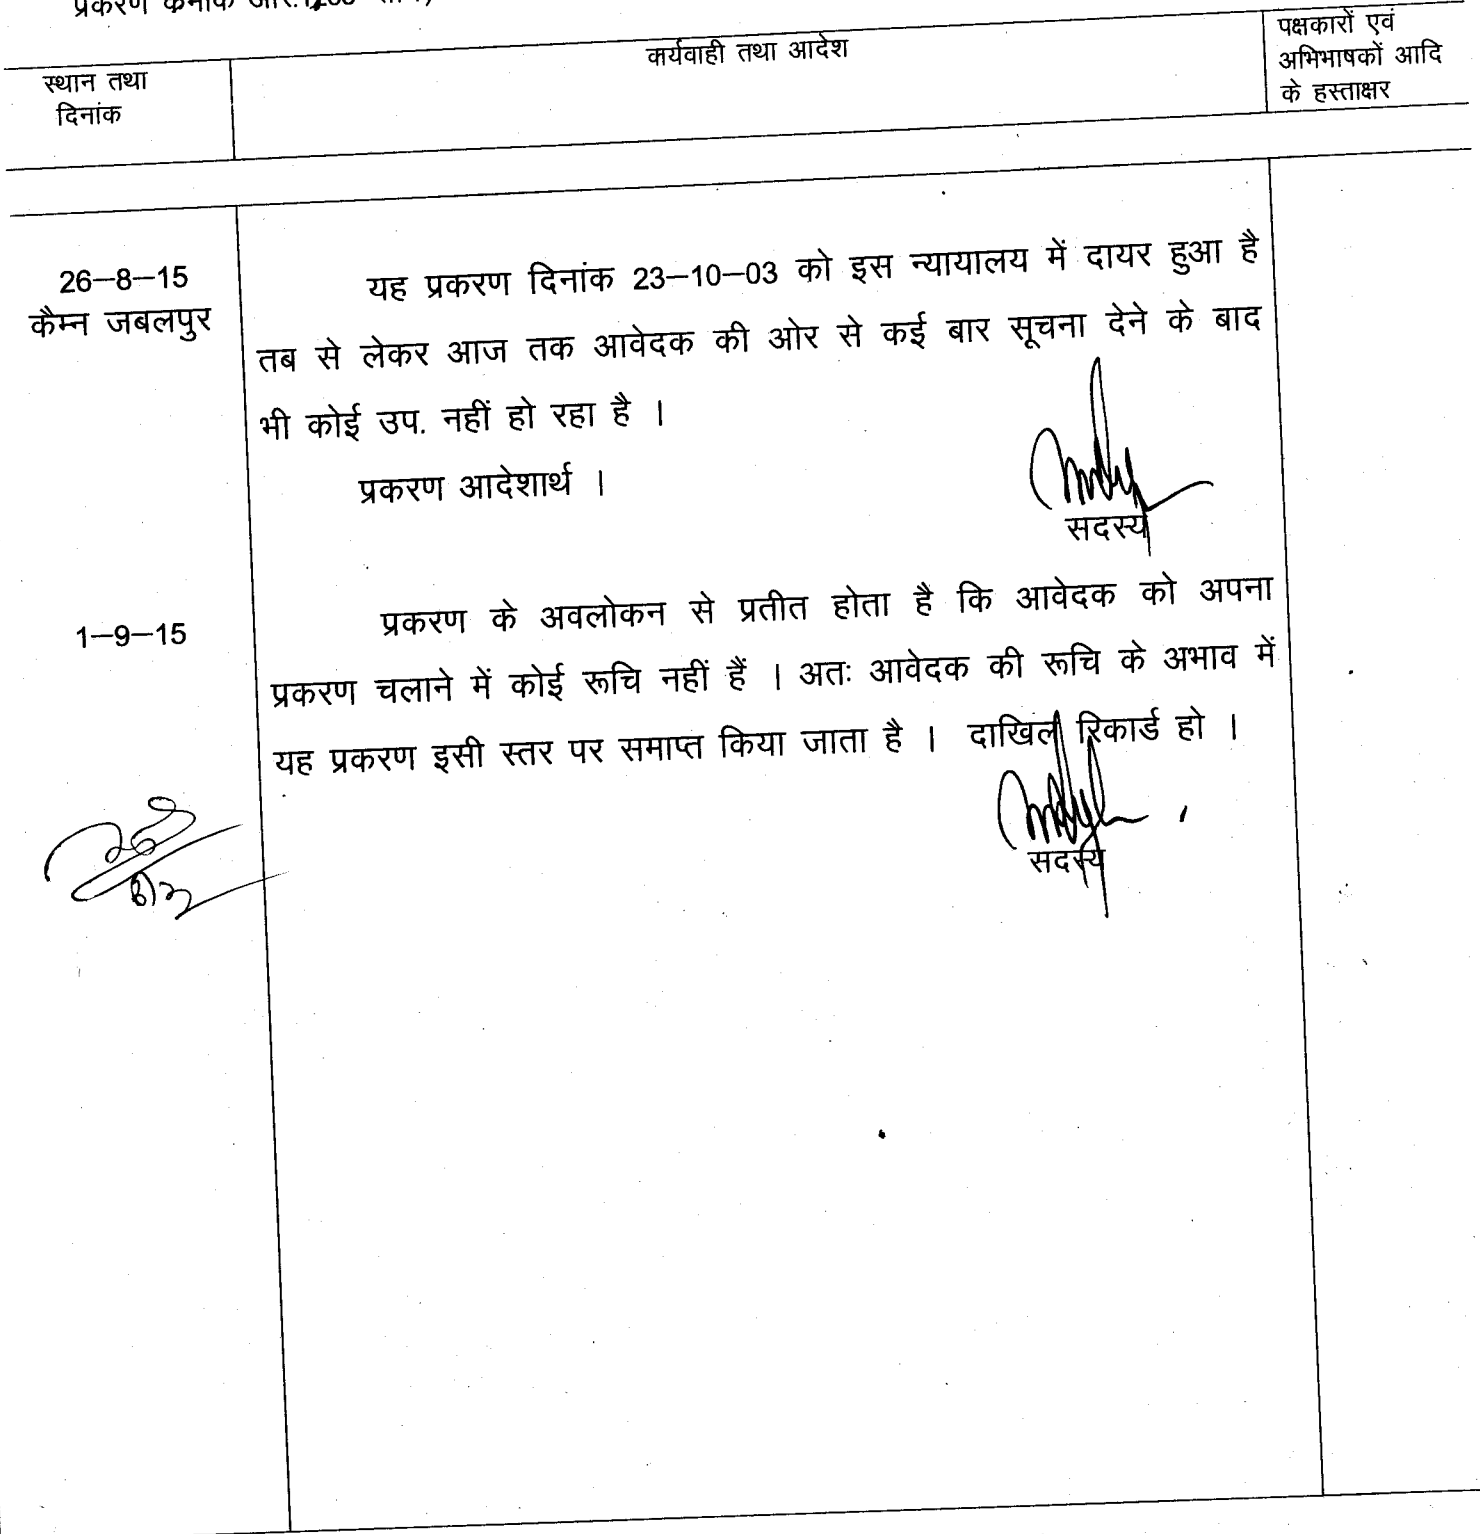 प्रकरण
स्थान तथा
दिनांक
कार्यवाही तथा आदेश
पक्षकारों एवं
अभिभाषकों आदि
के हस्ताक्षर
26–8–15
कैम्न जबलपुर
यह प्रकरण दिनांक 23–10–03 को इस न्यायालय में दायर हुआ है
तब से लेकर आज तक आवेदक की ओर से कई बार सूचना देने के बाद
भी कोई उप. नहीं हो रहा है ।
प्रकरण आदेशार्थ ।
सदस्य
1–9–15
प्रकरण के अवलोकन से प्रतीत होता है कि आवेदक को अपना
प्रकरण चलाने में कोई रूचि नहीं हैं । अतः आवेदक की रूचि के अभाव में
यह प्रकरण इसी स्तर पर समाप्त किया जाता है । दाखिल रिकार्ड हो ।
सदस्य